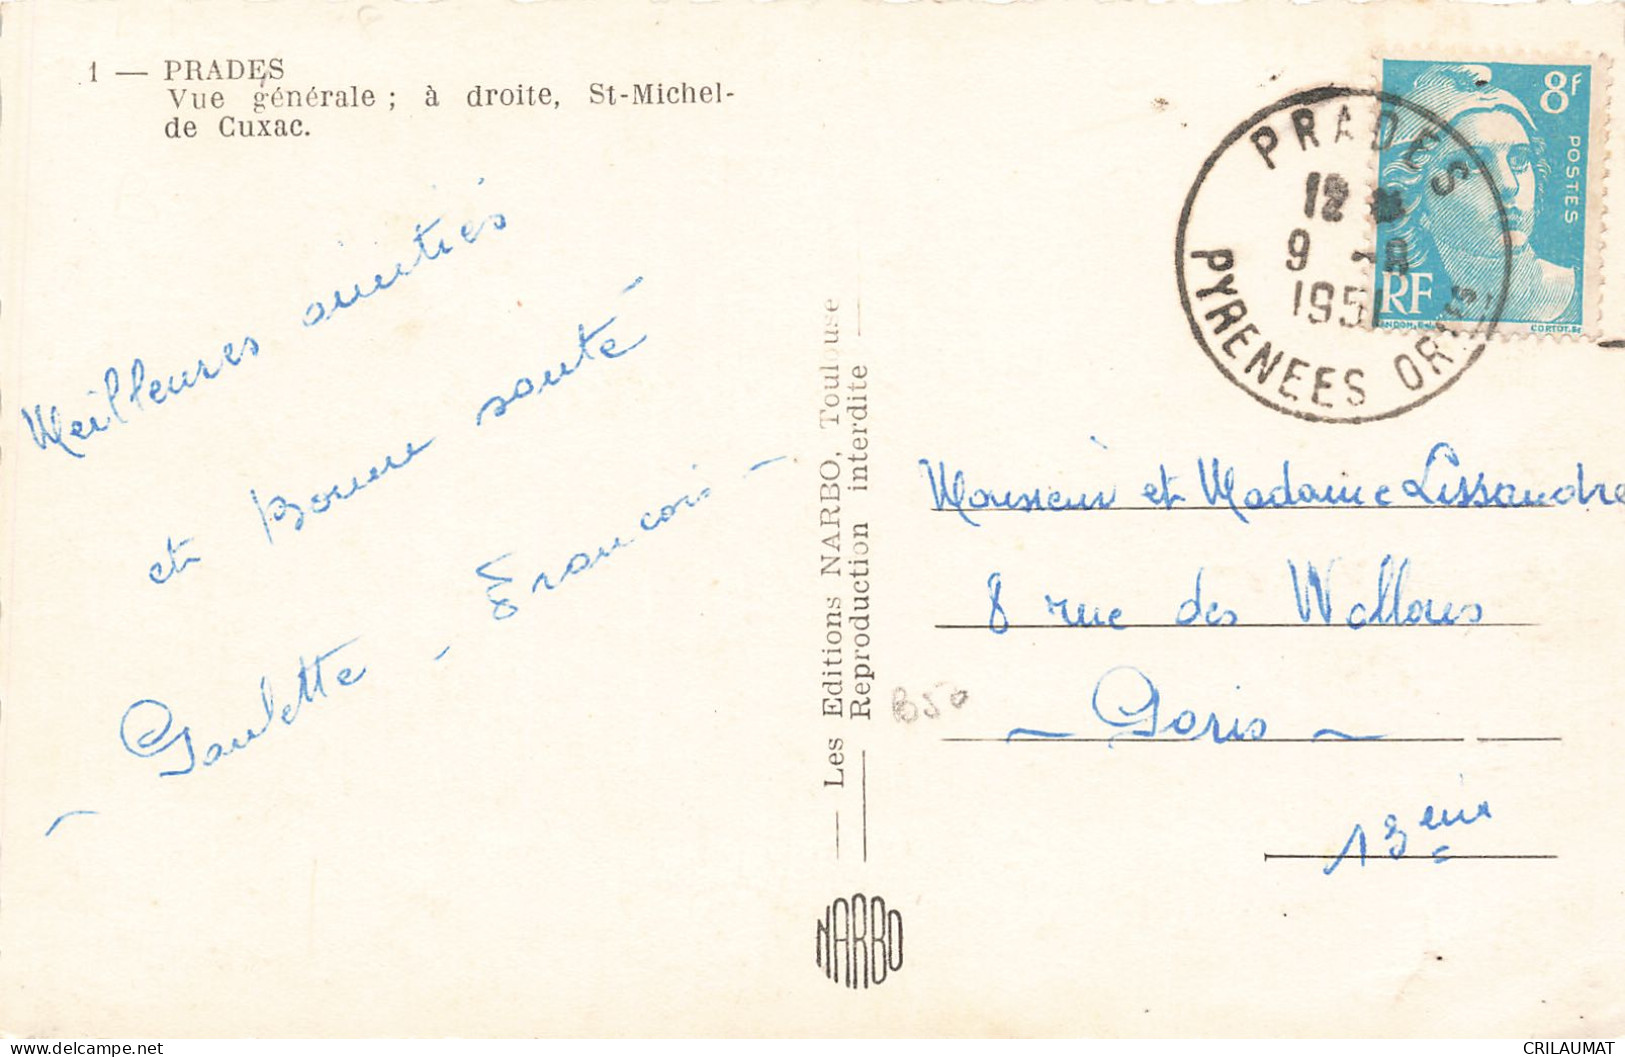 1 — PRADES
Vue générale ; à droite, St-Michel-
de Cuxac.
Meilleures amitiés
et Bonne santé
Paulette - François -
Les Editions NARBO, Toulouse
Reproduction interdite
NARBO
PRADES
12
9 - 8
1951
PYRENEES ORles
8f
POSTES
RF
CORTOT.Sc
Monsieur et Madame Lissandre
8 rue des Wallons
- Paris -
13eme
B50
delcampe.net
CRILAUMAT